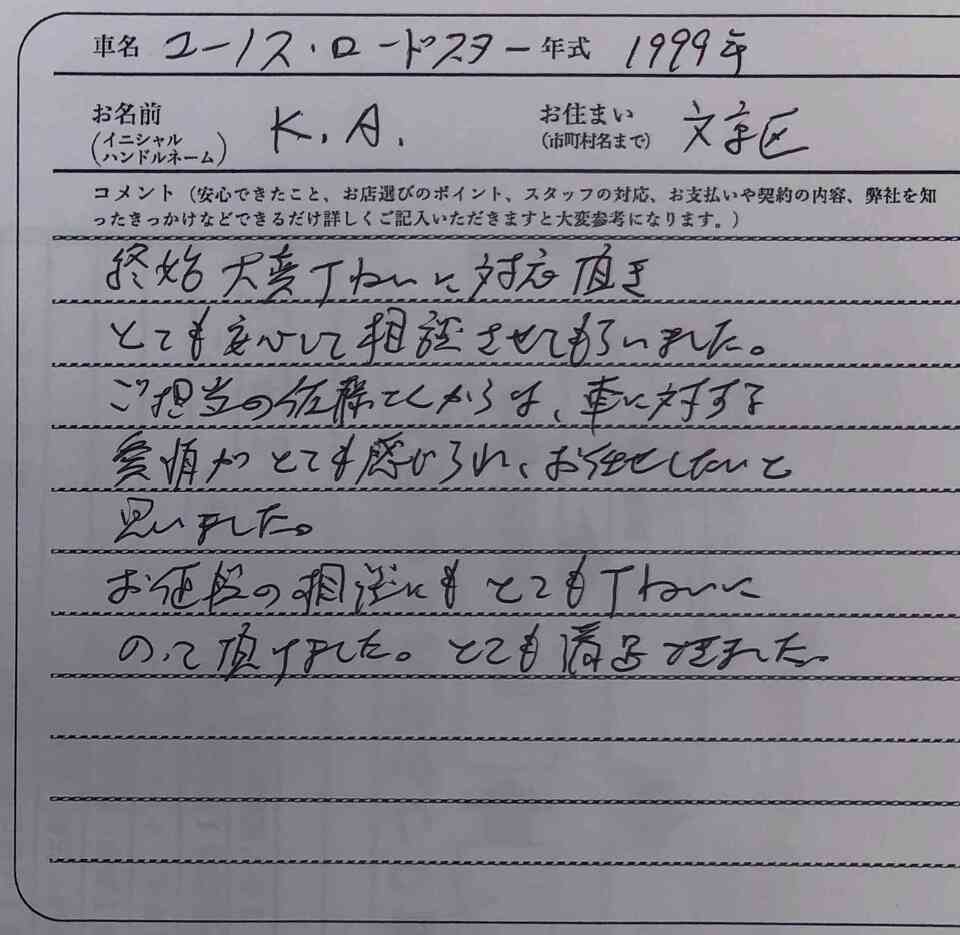 車名 ユーノス・ロードスター 年式 1999年
お名前 (イニシャル ハンドルネーム) K.A. お住まい (市町村名まで) 文京区
コメント（安心できたこと、お店選びのポイント、スタッフの対応、お支払いや契約の内容、弊社を知
ったきっかけなどできるだけ詳しくご記入いただきますと大変参考になります。）
終始大変丁ねいに対応頂き
とても安心して相談させてもらいました。
ご担当の佐藤さんからは、車に対する
愛情がとても感じられ、お任せしたいと
思いました。
お値段の相談にもとても丁ねいに
のって頂けました。とても満足できました。